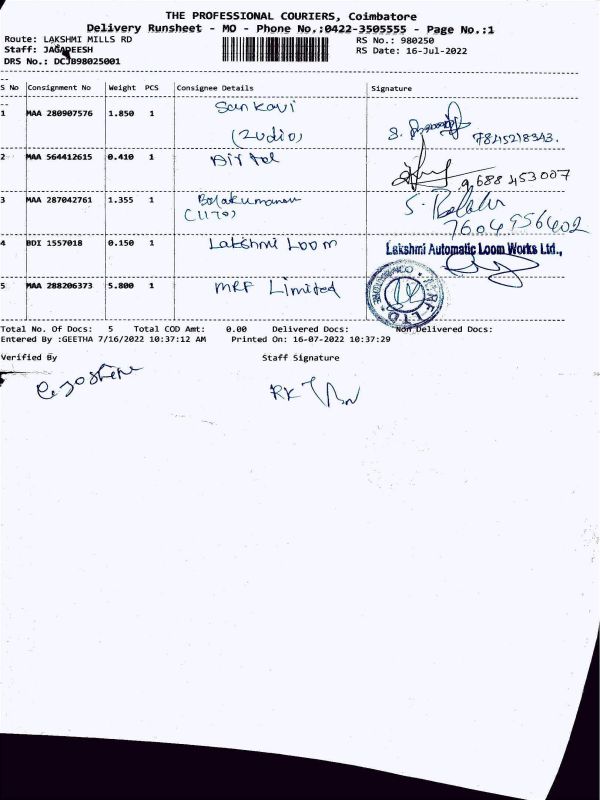 THE PROFESSIONAL COURIERS, Coimbatore
Delivery Runsheet - MO - Phone No.:0422-3505555 - Page No.:1
Route: LAKSHMI MILLS RD RS No.: 980250
Staff: JAGADEESH RS Date: 16-Jul-2022
DRS No.: DCJB98025001
S No Consignment No Weight PCS Consignee Details Signature
1 MAA 280907576 1.850 1 Sankavi
(Zudio) 7845218343.
2 MAA 564412615 0.410 1 Airtel
9688453007
3 MAA 287042761 1.355 1 Balakumaran
(1170) 7604956402
4 BDI 1557018 0.150 1 Lakshmi Loom Lakshmi Automatic Loom Works Ltd.,
5 MAA 288206373 5.800 1 MRF Limited
Total No. Of Docs: 5 Total COD Amt: 0.00 Delivered Docs: Non Delivered Docs:
Entered By :GEETHA 7/16/2022 10:37:12 AM Printed On: 16-07-2022 10:37:29
Verified By Staff Signature